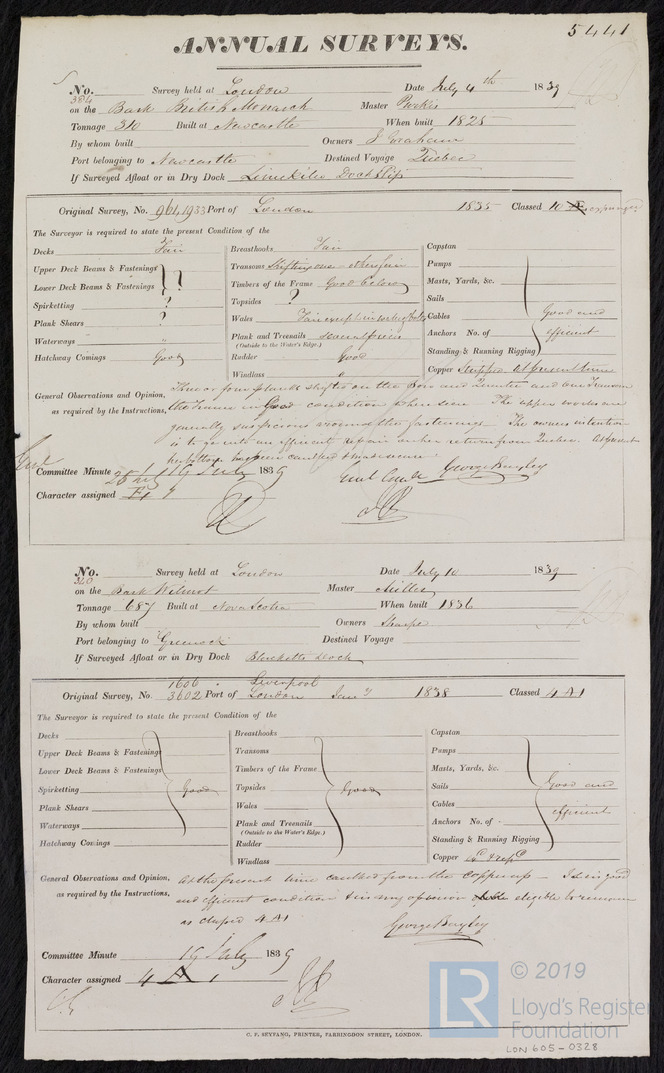 5441
ANNUAL SURVEYS.
No. 384 Survey held at London Date July 4th 1839
on the Bark British Monarch Master
Tonnage 310 Built at Newcastle When built 1825
By whom built Owners J Graham
Port belonging to Newcastle Destined Voyage Quebec
If Surveyed Afloat or in Dry Dock Limekiln Dock Slip
Original Survey, No. Port of London 1835 Classed 10 Æ expunged
The Surveyor is required to state the present Condition of the
Decks Fair
Upper Deck Beams & Fastenings ?
Lower Deck Beams & Fastenings
Spirketting ?
Plank Shears ?
Waterways "
Hatchway Comings Good
Breasthooks Fair
Transoms Shifting one otherwise fair
Timbers of the Frame Good below
Topsides ?
Wales Fair except
Plank and Treenails
(Outside to the Water's Edge.)
Rudder Good
Windlass
Capstan
Pumps
Masts, Yards, &c.
Sails
Cables Good and
Anchors No. of efficient
Standing & Running Rigging
Copper Stripped at present time
General Observations and Opinion, Three or four planks shifted on the Bow and Quarter and
as required by the Instructions, the Frame in Good condition where seen The upper works are
generally suspicious around the fastenings. The owners intention
is to give her an efficient repair on her return from Quebec. At present
her bottom has been caulked & made secure
Committee Minute 19 July 1839 George Bayley
Character assigned
No. 340 Survey held at London Date July 10 1839
on the Bark Wilmot Master Miller
Tonnage 687 Built at Nova Scotia When built 1836
By whom built Owners Sharpe
Port belonging to Greenock Destined Voyage
If Surveyed Afloat or in Dry Dock Blacketts Dock
1606 Liverpool
Original Survey, No. 3602 Port of London Jany 1838 Classed 4 A 1
The Surveyor is required to state the present Condition of the
Decks
Upper Deck Beams & Fastenings
Lower Deck Beams & Fastenings
Spirketting Good
Plank Shears
Waterways
Hatchway Comings
Breasthooks
Transoms
Timbers of the Frame
Topsides Good
Wales
Plank and Treenails
(Outside to the Water's Edge.)
Rudder
Windlass
Capstan
Pumps
Masts, Yards, &c.
Sails Good and
Cables efficient
Anchors No. of
Standing & Running Rigging
Copper
General Observations and Opinion, At the present time caulked from the copper up — & is in good
as required by the Instructions, and efficient condition & in my opinion eligible to remain
as classed 4 A1
George Bayley
Committee Minute 19 July 1839
Character assigned 4 A 1
C. F. SEYFANG, PRINTER, FARRINGDON STREET, LONDON.
LR
© 2019
Lloyd's Register
Foundation
LON 605-0328